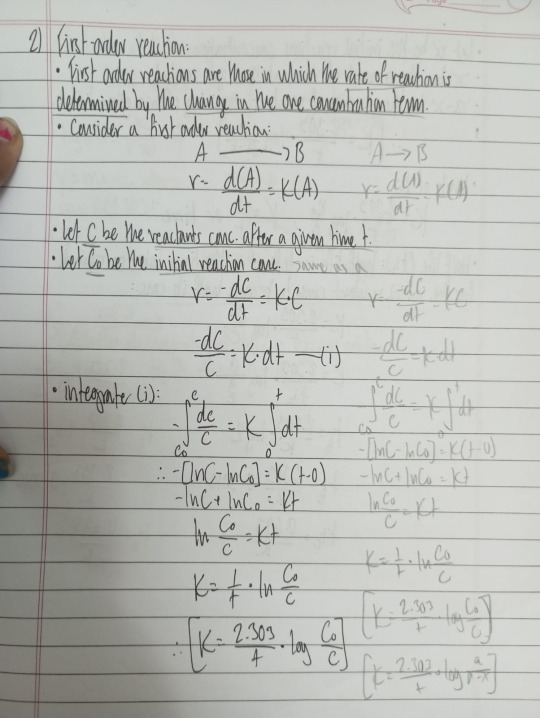 2) First order reaction:
• First order reactions are those in which the rate of reaction is
determined by the change in the one concentration term.
• Consider a first order reaction:
A ⟶ B A → B
r = d(A)/dt = K(A) r = d(A)/dt = K(A)
• Let C be the reactants conc. after a given time t.
• Let C₀ be the initial reaction conc. same as a
r = -dC/dt = K·C r = -dC/dt = KC
-dC/C = K·dt —(i) -dC/C = K dt
• integrate (i):
-∫_{C₀}^{C} dc/C = K ∫_{0}^{t} dt ∫_{C₀}^{C} dC/C = K ∫_{0}^{t} dt
∴ -[lnC - lnC₀] = K(t-0) -[lnC - lnC₀] = K(t-0)
-lnC + lnC₀ = Kt -lnC + lnC₀ = Kt
ln C₀/C = Kt ln C₀/C = Kt
K = 1/t · ln C₀/C K = 1/t · ln C₀/C
∴ [K = 2.303/t · log C₀/C] [K = 2.303/t · log C₀/C]
[K = 2.303/t · log a/a-x]